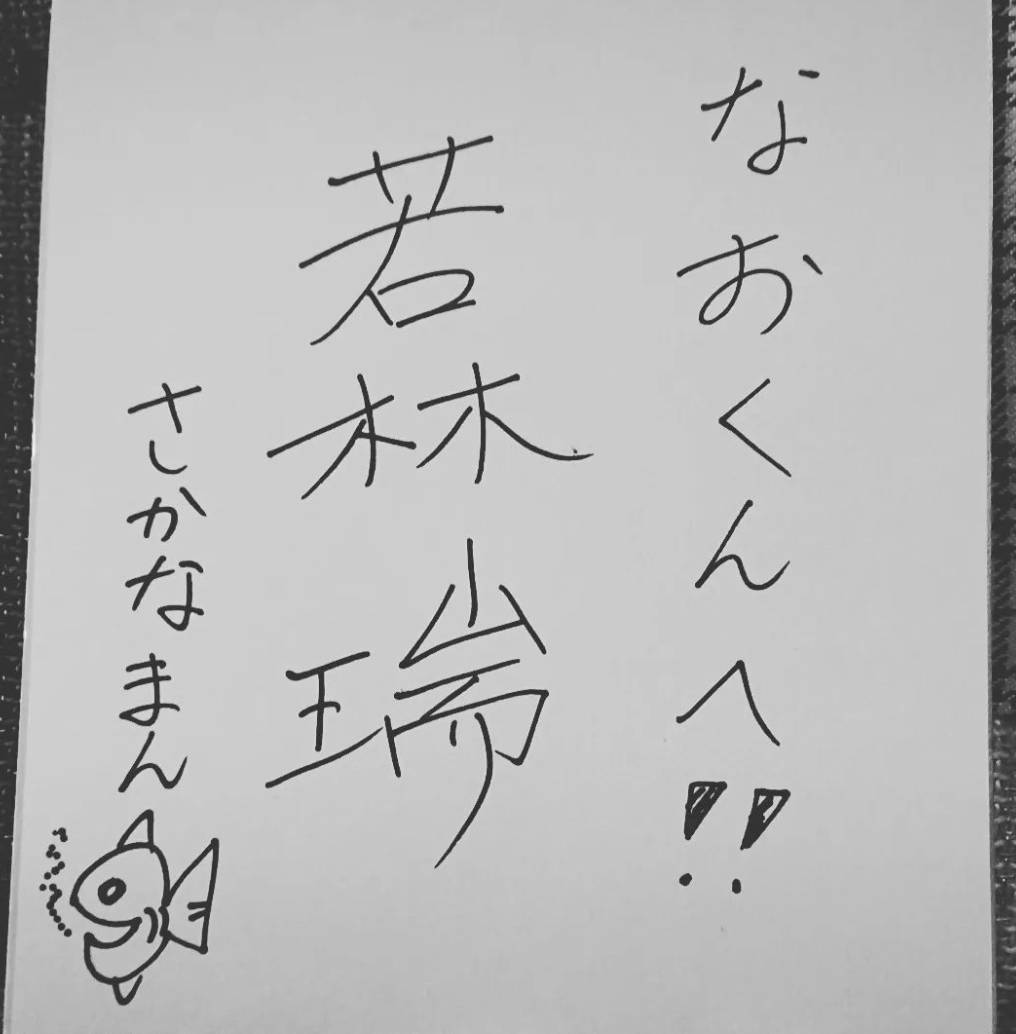 なおくんへ!!
若林瑞
さかなまん